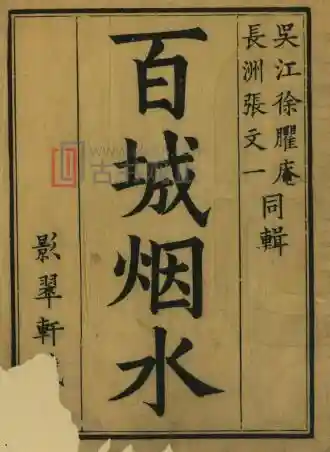 吳江徐臞庵
長洲張文一
同輯
百城烟水
影翠軒